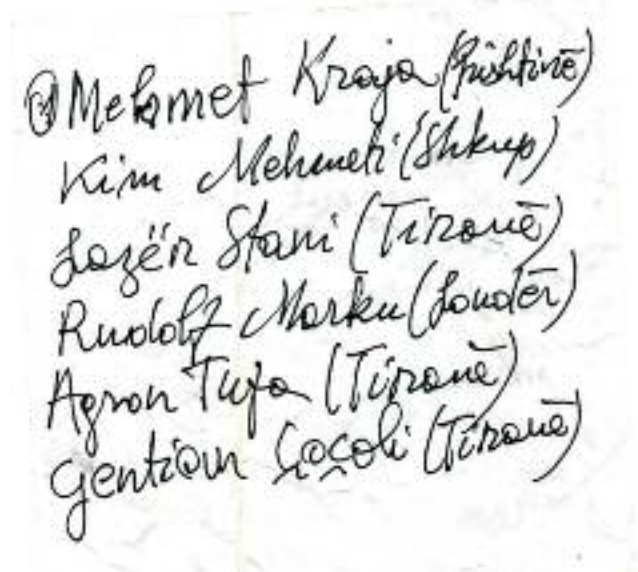 Mehmet Kraja (Prishtinë)
Kim Mehmeti (Shkup)
Lazër Stani (Tiranë)
Rudolf Marku (Londër)
Agron Tufa (Tiranë)
Gentian Çoçoli (Tiranë)